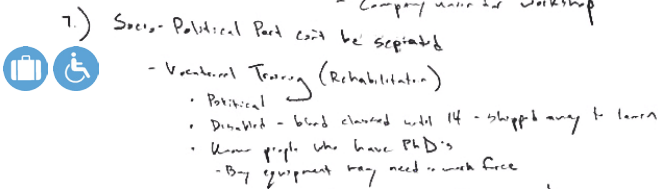 - Company union for workshop
7.) Socio-Political Part can't be seperated
- Vocational Training (Rehabilitation)
• Political
• Disabled - blind classed until 14 - shipped away to learn
• Know people who have PhD's
- Buy equipment may need to work free